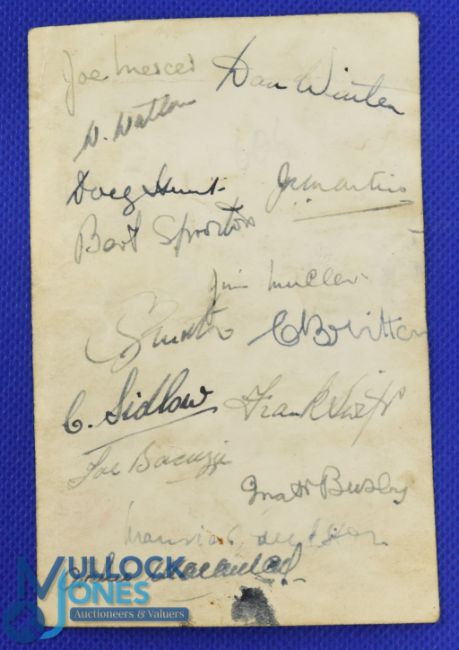 Joe Mercer
Dan Winter
W. Watson
Doug Hunt
J R Martin
Bert Sproston
Jim Muller
Smith
C B Britton
C. Sidlow
Frank Swift
Joe Bacuzzi
Matt Busby
MULLOCK
JONES
Auctioneers & Valuers